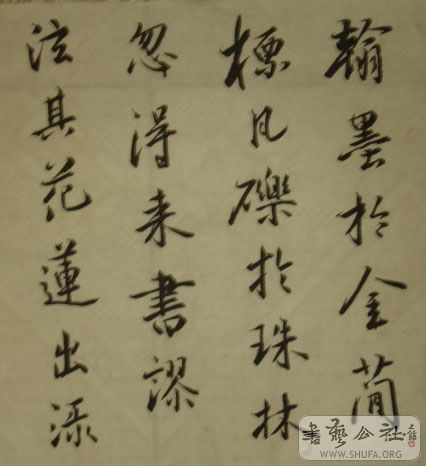 翰墨於金簡
標瓦礫於珠林
忽得来書謬
泫其花蓮出渌
書藝公社
WWW.SHUFA.ORG